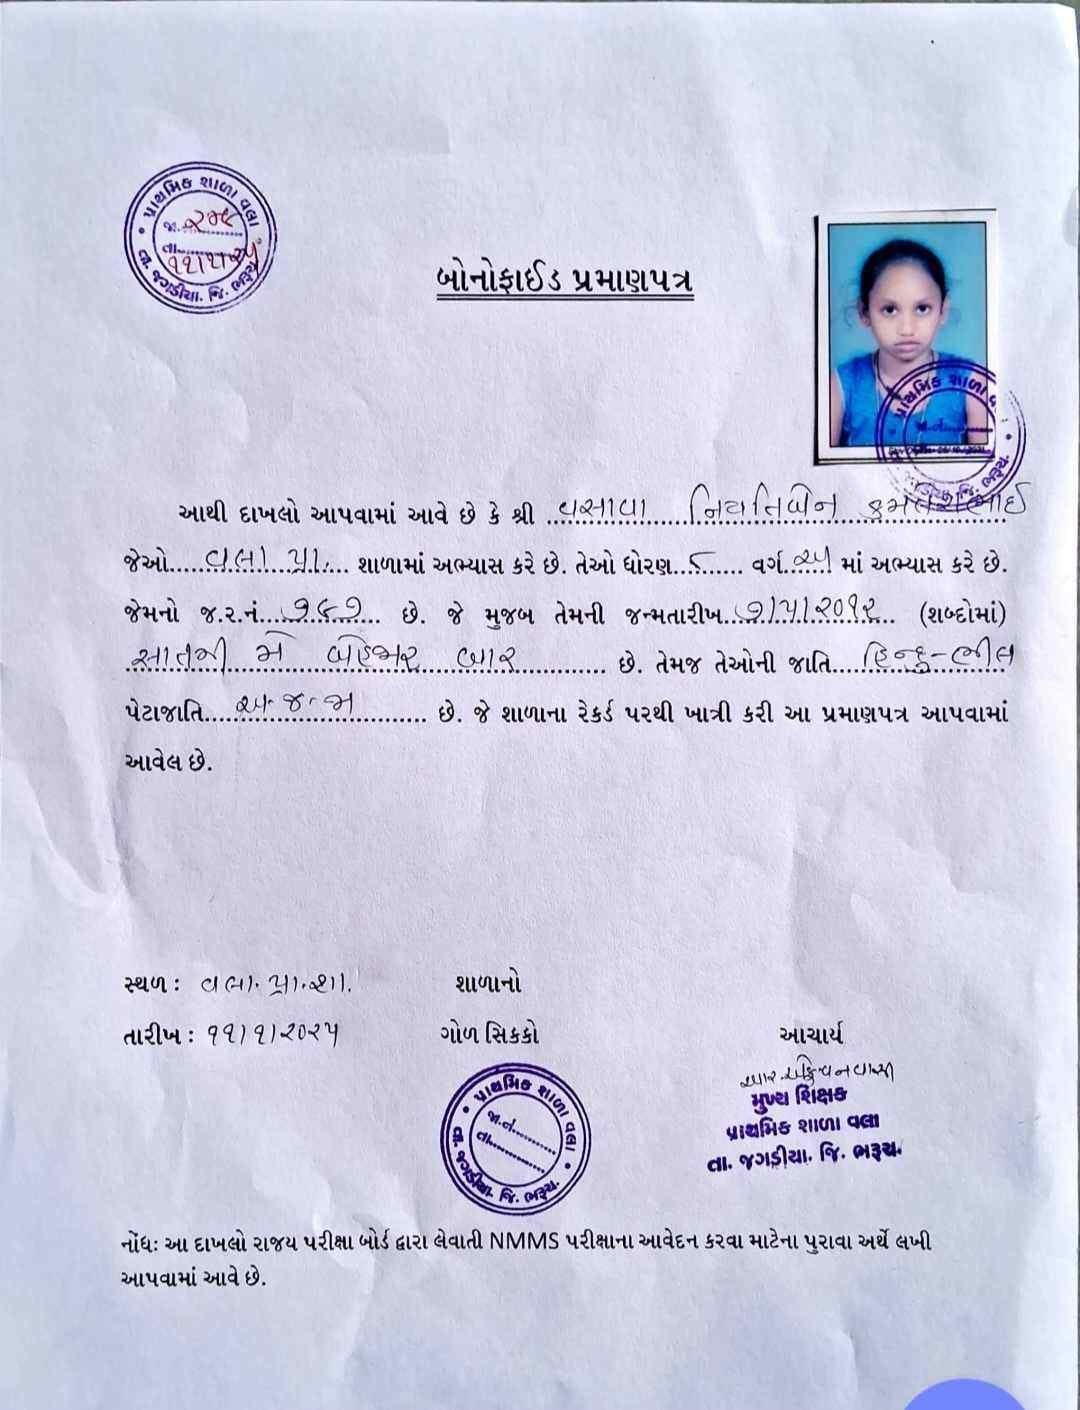 પ્રાથમિક શાળા વલા
જા.
તા.
તા. જગડીયા. જિ. ભરૂચ.
બોનોફાઈડ પ્રમાણપત્ર
આથી દાખલો આપવામાં આવે છે કે શ્રી વસાવા નિયતિબેન
જેઓ વલા પ્રા. શાળામાં અભ્યાસ કરે છે. તેઓ ધોરણ ૮ વર્ગ માં અભ્યાસ કરે છે.
જેમનો જ.ર.નં. છે. જે મુજબ તેમની જન્મતારીખ ૭/૫/૨૦૧૨ (શબ્દોમાં)
સાતમી મે બેહજાર બાર છે. તેમજ તેઓની જાતિ હિન્દુ-ભીલ
પેટાજાતિ અ.જ.જા છે. જે શાળાના રેકર્ડ પરથી ખાત્રી કરી આ પ્રમાણપત્ર આપવામાં
આવેલ છે.
સ્થળ : વલા. પ્રા.શા. શાળાનો
તારીખ : ૧૧/૧/૨૦૨૫ ગોળ સિકકો આચાર્ય
મુખ્ય શિક્ષક
પ્રાથમિક શાળા વલા
તા. જગડીયા. જિ. ભરૂચ.
પ્રાથમિક શાળા વલા
જા.નં.
તા.
તા. જગડીયા. જિ. ભરૂચ.
નોંધ: આ દાખલો રાજય પરીક્ષા બોર્ડ દ્વારા લેવાતી NMMS પરીક્ષાના આવેદન કરવા માટેના પુરાવા અર્થે લખી
આપવામાં આવે છે.